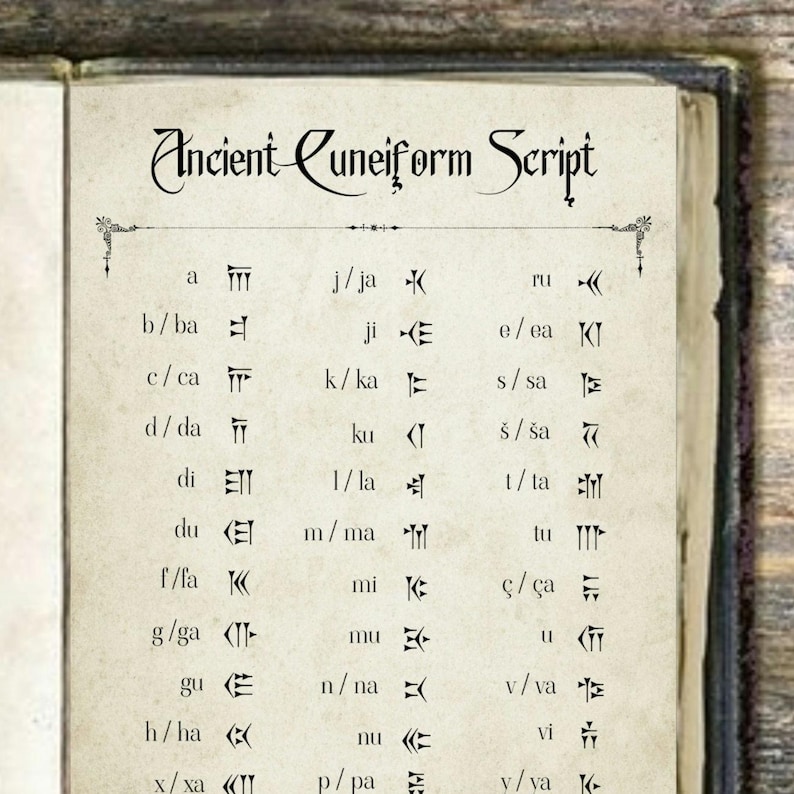 Ancient Cuneiform Script
a 𐎠 j / ja 𐎩 ru 𐎽
b / ba 𐎲 ji 𐎪 e / ea 𐎰
c / ca 𐎨 k / ka 𐎣 s / sa 𐎿
d / da 𐎭 ku 𐎤 š / ša 𐏁
di 𐎮 l / la 𐎾 t / ta 𐎫
du 𐎯 m / ma 𐎶 tu 𐎬
f /fa 𐎳 mi 𐎷 ç / ça 𐏂
g /ga 𐎥 mu 𐎸 u 𐎢
gu 𐎦 n / na 𐎴 v / va 𐎺
h / ha 𐏃 nu 𐎵 vi 𐎻
x / xa 𐎧 p / pa 𐎱 y / ya 𐎹